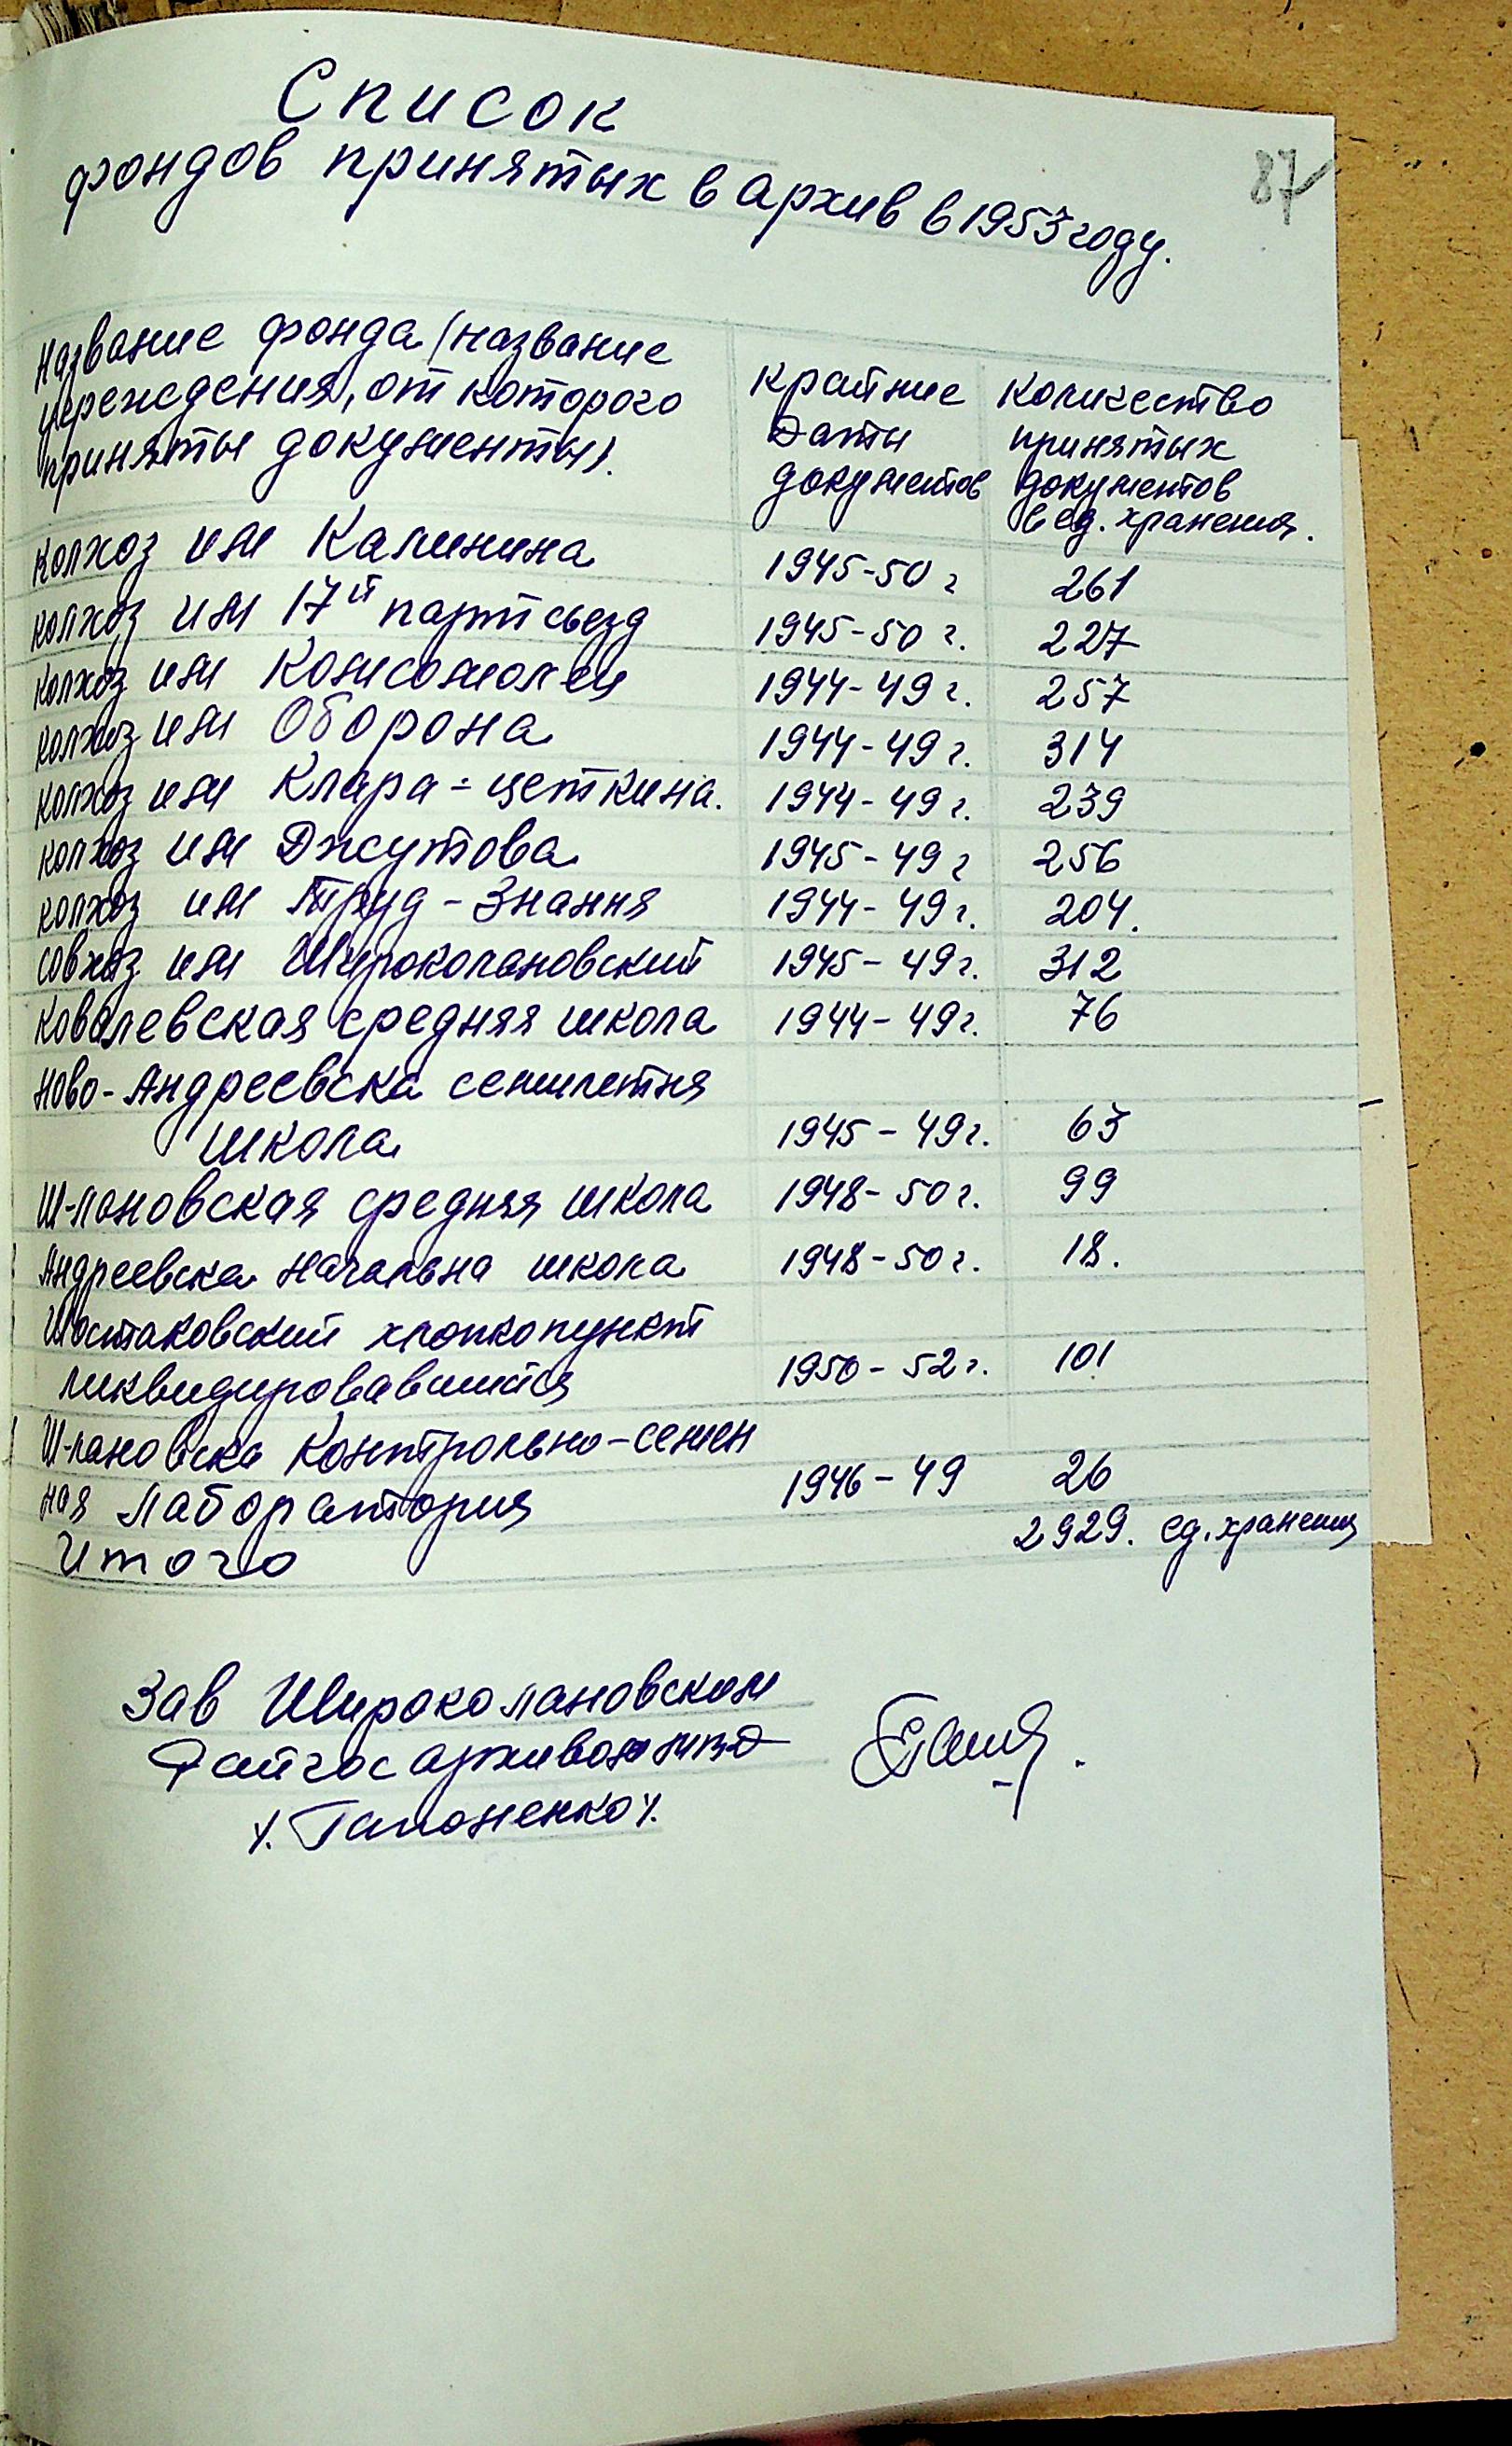 Список
фондов принятых в архив в 1953 году.
87
Название фонда (название
учреждения, от которого
приняты документы).
крайние
даты
документов
количество
принятых
документов
в ед. хранения.
колхоз им Калинина 1945-50 г 261
колхоз им 17й партсьезд 1945-50 г. 227
колхоз им Комсомолец 1944-49 г. 257
колхоз им Оборона 1944-49 г. 314
колхоз им Клара=цеткина. 1944-49 г. 239
колхоз им Джутова 1945-49 г 256
колхоз им Труд-Знання 1944-49 г. 204.
совхоз им Широколановский 1945-49 г. 312
Ковалевская средняя школа 1944-49 г. 76
Ново-Андреевска семилетня
школа 1945-49 г. 63
Ш-лановская средняя школа 1948-50 г. 99
Андреевска начальна школа 1948-50 г. 18.
Шостаковский хлопкопункт
ликвидировавшийся 1950-52 г. 101
Ш-лановска Контрольно-семен
ная Лаборатория 1946-49 26
Итого 2929. ед. хранения
Зав Широколановском
/. Гапоненко /.